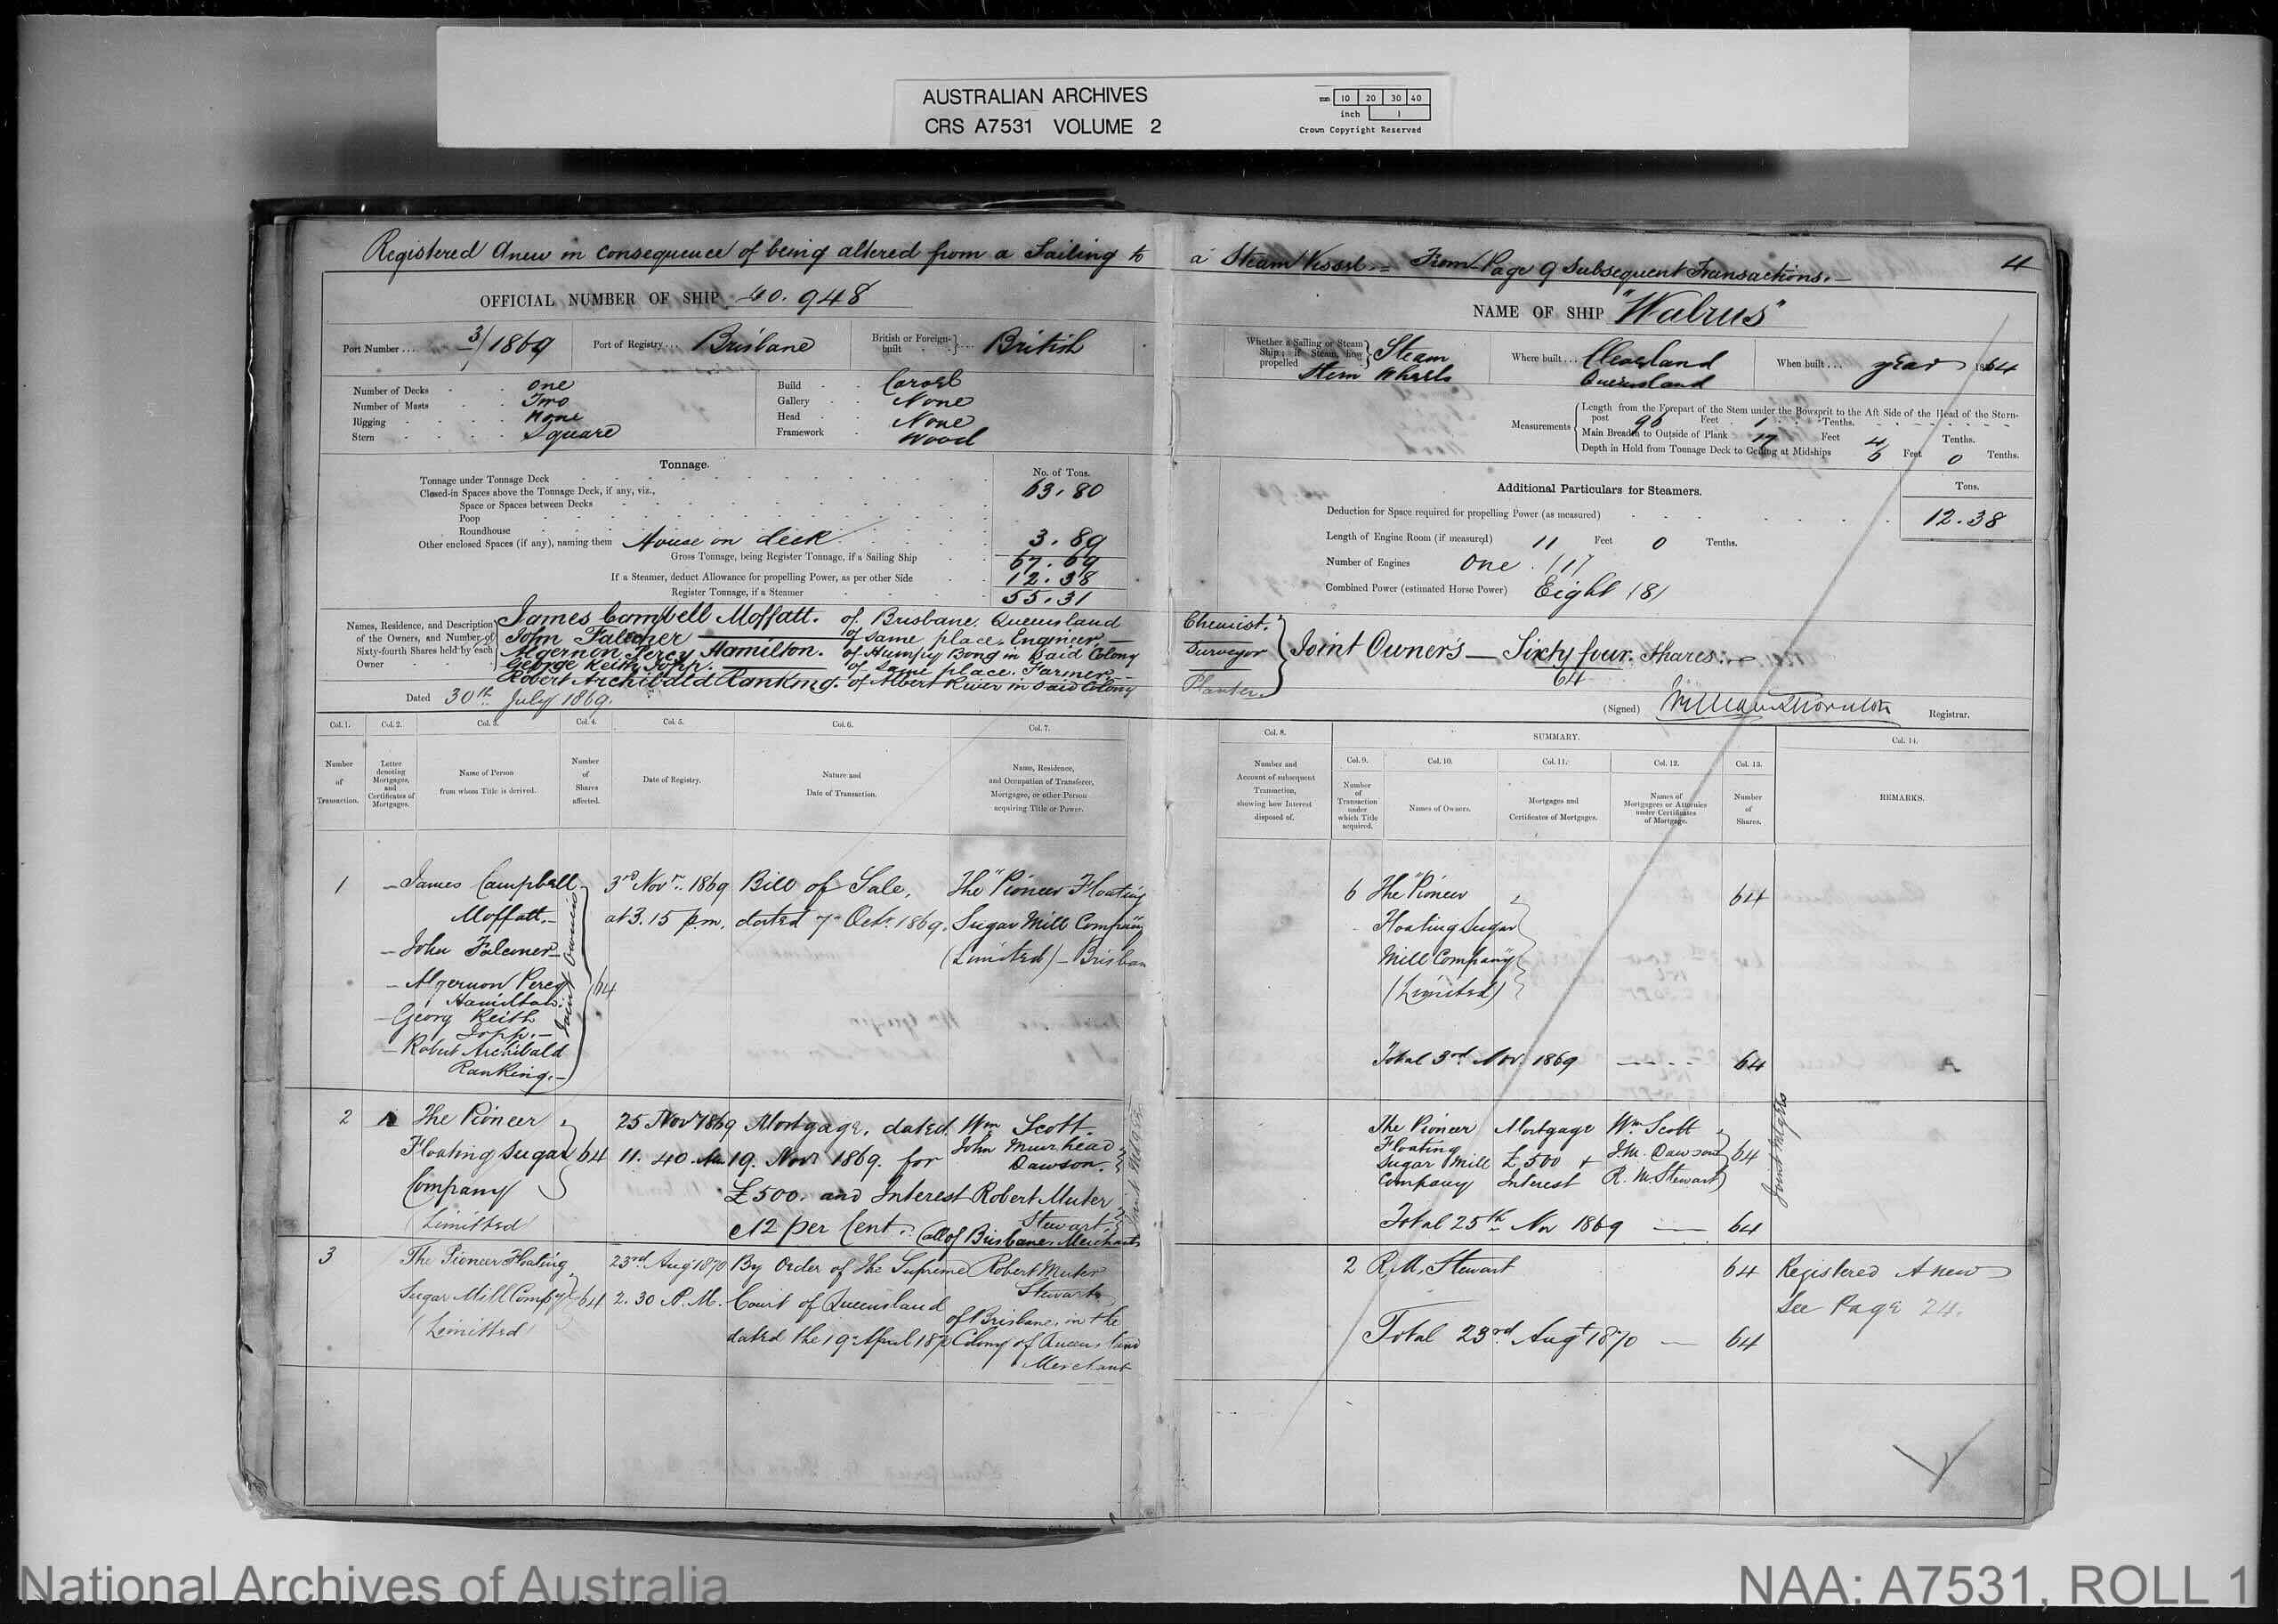 AUSTRALIAN ARCHIVES
CRS A7531 VOLUME 2
mm 10 20 30 40
inch 1
Crown Copyright Reserved
Registered Anew in consequence of being altered from a Sailing to
a Steam Vessel = From Page 9 Subsequent Transactions.
4
OFFICIAL NUMBER OF SHIP 60.948
Port Number ... 3/1869
Port of Registry ... Brisbane
British or Foreign-built } ... British
Number of Decks One
Number of Masts Two
Rigging None
Stern Square
Build Carvel
Gallery None
Head None
Framework Wood
Tonnage.
No. of Tons.
Tonnage under Tonnage Deck 63.80
Closed-in Spaces above the Tonnage Deck, if any, viz.,
Space or Spaces between Decks
Poop
Roundhouse
Other enclosed Spaces (if any), naming them House on deck 3.89
Gross Tonnage, being Register Tonnage, if a Sailing Ship 67.69
If a Steamer, deduct Allowance for propelling Power, as per other Side 12.38
Register Tonnage, if a Steamer 55.31
Names, Residence, and Description
of the Owners, and Number of
Sixty-fourth Shares held by each
Owner
James Campbell Moffatt. of Brisbane. Queensland
John Falconer of same place. Engineer
Algernon Percy Hamilton. of Humpy Bong in said Colony
George Keith Jopp. of same place. Farmer
Robert Archibald Ranking. of Albert River in said Colony
Dated 30th July 1869.
NAME OF SHIP "Walrus"
Whether a Sailing or Steam
Ship; if Steam, how
propelled } Steam
Stern Wheels
Where built ... Cleveland
Queensland
When built ... year 1864
Measurements
Length from the Forepart of the Stem under the Bowsprit to the Aft Side of the Head of the Stern-
post 96 Feet 1 Tenths.
Main Breadth to Outside of Plank 17 Feet 4 Tenths.
Depth in Hold from Tonnage Deck to Ceiling at Midships 6 Feet 0 Tenths.
Additional Particulars for Steamers.
Tons.
Deduction for Space required for propelling Power (as measured) 12.38
Length of Engine Room (if measured) 11 Feet 0 Tenths.
Number of Engines One (1)
Combined Power (estimated Horse Power) Eight (8)
Chemist.
Surveyor
Planter.
Joint Owners — Sixty four. Shares.
64
(Signed) William Thornton Registrar.
Col. 1. Col. 2. Col. 3. Col. 4. Col. 5. Col. 6. Col. 7.
Number
of
Transaction.
Letter
denoting
Mortgages,
and
Certificates of
Mortgages.
Name of Person
from whom Title is derived.
Number
of
Shares
affected.
Date of Registry.
Nature and
Date of Transaction.
Name, Residence,
and Occupation of Transferee,
Mortgagee, or other Person
acquiring Title or Power.
1
James Campbell
Moffatt.
John Falconer
Algernon Percy
Hamilton.
Georg Keith
Jopp.
Robert Archibald
Ranking.
Joint Owners
64
3rd Novr. 1869
at 3.15 p.m.
Bill of Sale,
dated 7 Octr. 1869.
The "Pioneer Floating
Sugar Mill Company
(Limited) – Brisban
2
A
The Pioneer
Floating Sugar
Company
(Limitted)
64
25 Novr 1869
11.40 Am
Mortgage, dated
19. Novr 1869. for
£500. and Interest
12 per Cent.
Wm Scott.
John Muirhead
Dawson.
Robert Muter
Stewart.
(all of Brisbane. Merchants
3
The Pioneer Floating
Sugar Mill Compy
(Limitted)
64
23rd Aug 1870
2.30 P.M.
By Order of the Supreme
Court of Queensland
dated the 19 April 1870
Robert Muter
Stewart
of Brisbane, in the
Colony of Queensland
Merchant
Col. 8.
Number and
Account of subsequent
Transaction,
showing how Interest
disposed of.
SUMMARY.
Col. 9. Col. 10. Col. 11. Col. 12. Col. 13.
Number
of
Transaction
under
which Title
acquired.
Names of Owners.
Mortgages and
Certificates of Mortgages.
Names of
Mortgagees or Attornies
under Certificates
of Mortgage.
Number
of
Shares.
Col. 14.
REMARKS.
6
The "Pioneer
Floating Sugar
Mill Company"
(Limited)
64
Total 3rd Nov. 1869 64
The Pioneer
Floating
Sugar Mill
Company
Mortgage
£500 +
Interest
Wm Scott
J.M. Dawson
R. M Stewart
64
Joint Mtgees
Total 25th Nov 1869 — 64
2 R. M. Stewart 64
Registered Anew
See Page 24.
Total 23rd Augt 1870 — 64
National Archives of Australia
NAA: A7531, ROLL 1